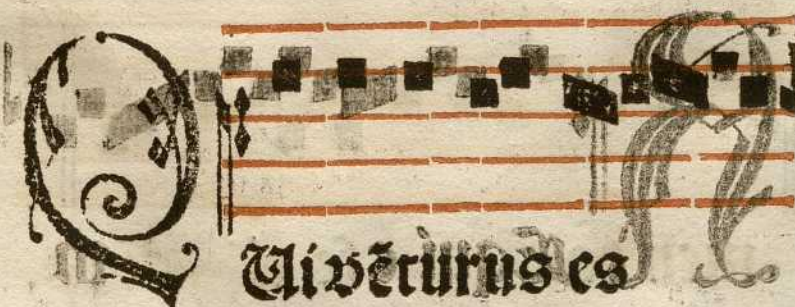 QUi vẽturus es